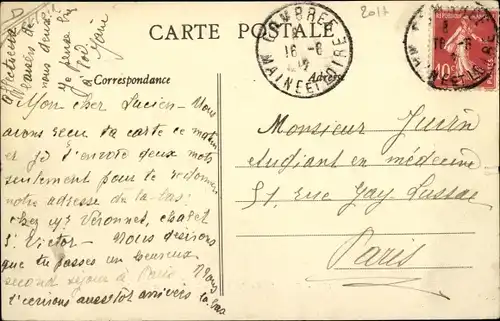 2017
CARTE POSTALE
COMBREE
16-6
MAINE ET LOIRE
RÉPUBLIQUE
10
Correspondance
Adresse
Mon cher Lucien - Nous
avons reçu ta carte ce matin
et je t'envoie deux mots
seulement pour te redonner
notre adresse de là-bas :
chez Mr Véronnet, chalet
St Victor - Nous désirons
que tu passes un heureux
second séjour à Paris Nous
t'écrirons aussitôt arrivés là-bas
nous deux
Je pense
à toi
Monsieur Juin
étudiant en médecine
51, rue Gay Lussac
Paris